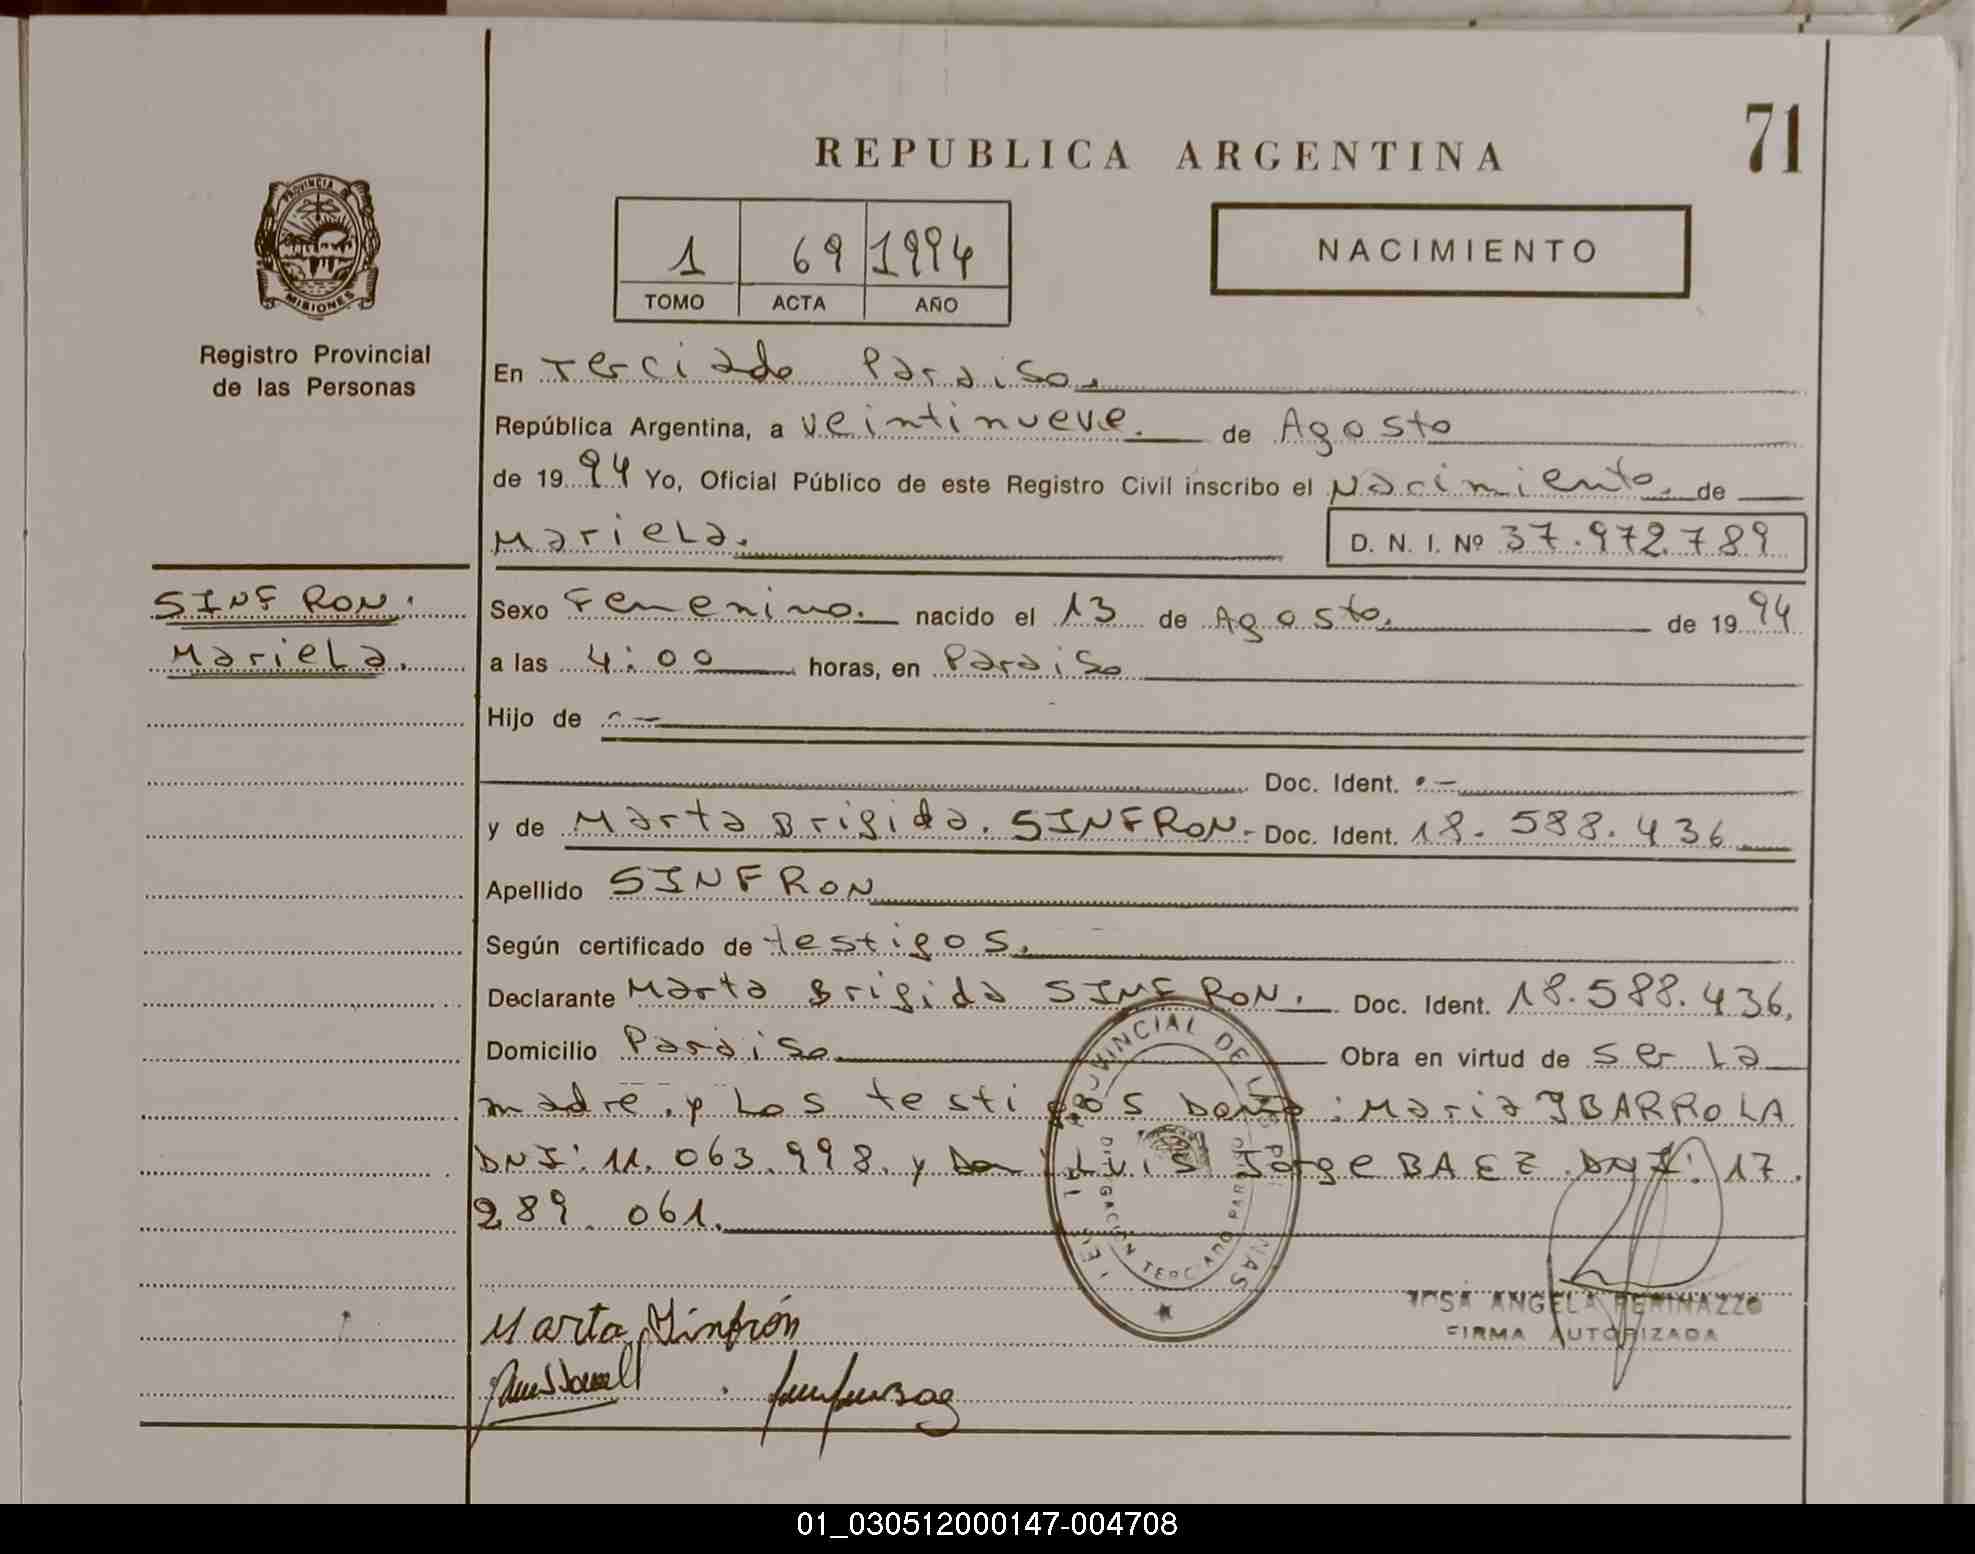 71
REPUBLICA ARGENTINA
PROVINCIA DE
MISIONES
Registro Provincial
de las Personas
1 69 1994
TOMO ACTA AÑO
NACIMIENTO
En Terciado Paraiso.
República Argentina, a veintinueve. de Agosto
de 1994 Yo, Oficial Público de este Registro Civil inscribo el Nacimiento. de
Mariela. D. N. I. Nº 37.972.789
SINFRON.
Mariela.
Sexo Femenino. nacido el 13 de Agosto. de 1994
a las 4:00 horas, en Paraiso
Hijo de
Doc. Ident.
y de Marta Brigida. SINFRON.- Doc. Ident. 18.588.436
Apellido SINFRON
Según certificado de testigos.
Declarante Marta Brigida SINFRON. Doc. Ident. 18.588.436.
Domicilio Paraiso Obra en virtud de ser La
madre. y Los testigos Doña: Maria IBARROLA
DNI: 11.063.998. y Don Luis Jorge BAEZ DNI: 17.
289.061.
PROVINCIAL DE LAS PERSONAS
DELEGACION TERCIADO PARAISO
Marta Sinfrón
ROSA ANGELA PERINAZZO
FIRMA AUTORIZADA
01_030512000147-004708